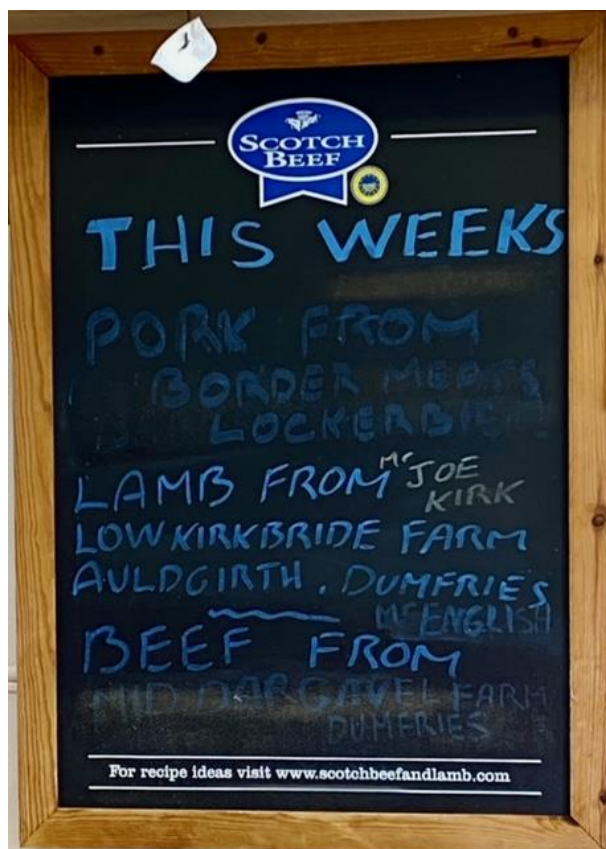 SCOTCH
BEEF
THIS WEEKS
PORK FROM
BORDER MEATS
LOCKERBIE
LAMB FROM Mr JOE
KIRK
LOW KIRKBRIDE FARM
AULDGIRTH. DUMFRIES
Mr ENGLISH
BEEF FROM
MID DARGAVEL FARM
DUMFRIES
For recipe ideas visit www.scotchbeefandlamb.com